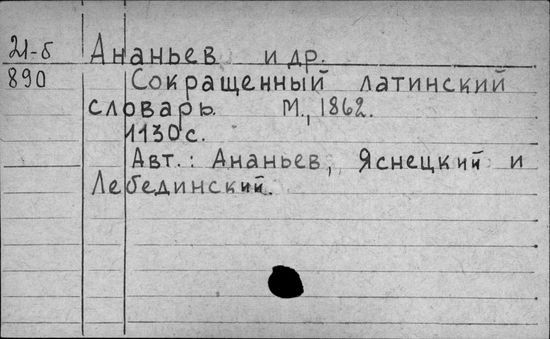 21-б Ананьев и др.
890 Сокращенный латинский
словарь. М., 1862.
1130 с.
Авт.: Ананьев, Яснецкий и
Лебединский.